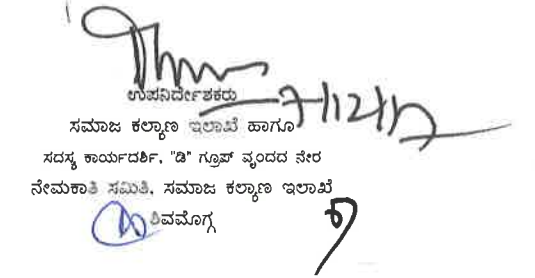 ಉಪನಿರ್ದೇಶಕರು
ಸಮಾಜ ಕಲ್ಯಾಣ ಇಲಾಖೆ ಹಾಗೂ
ಸದಸ್ಯ ಕಾರ್ಯದರ್ಶಿ, "ಡಿ" ಗ್ರೂಪ್ ವೃಂದದ ನೇರ
ನೇಮಕಾತಿ ಸಮಿತಿ, ಸಮಾಜ ಕಲ್ಯಾಣ ಇಲಾಖೆ
ಶಿವಮೊಗ್ಗ